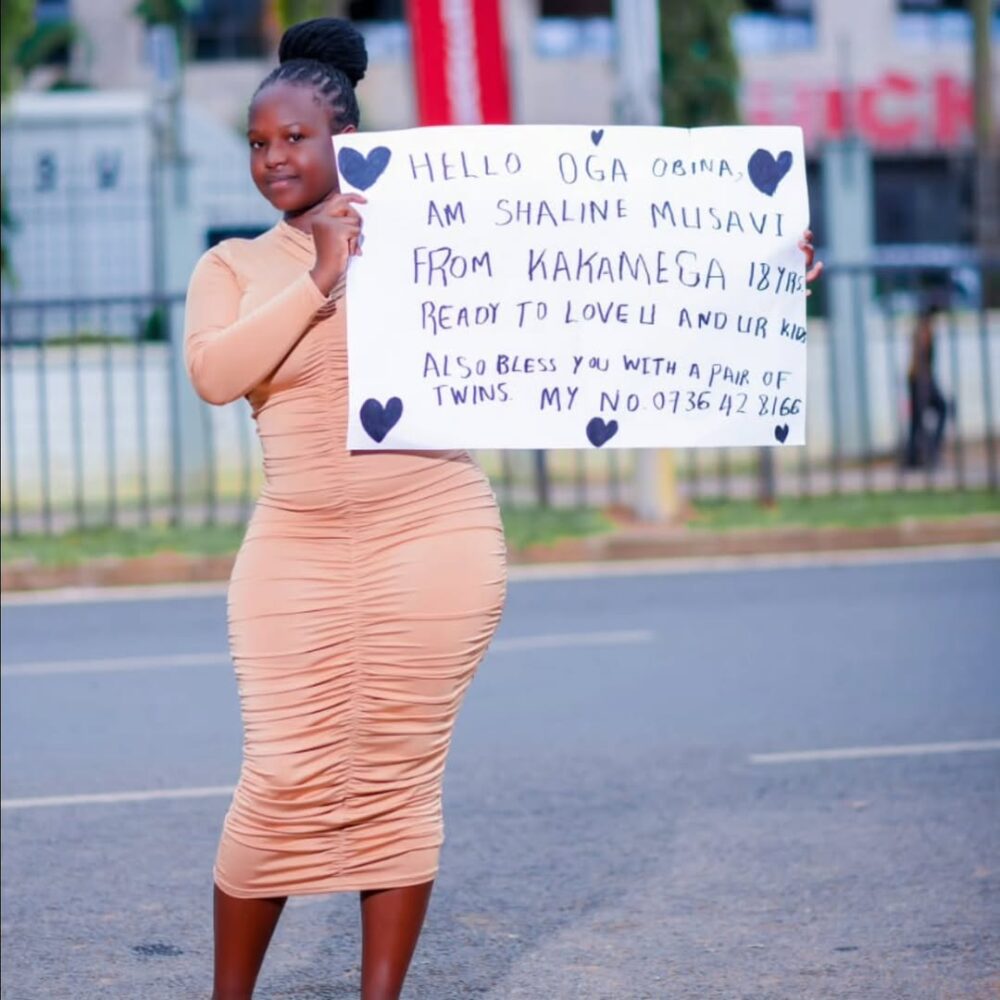 HELLO OGA OBINA,
AM SHALINE MUSAVI
FROM KAKAMEGA 18 YRS.
READY TO LOVE U AND UR KIDS
ALSO BLESS YOU WITH A PAIR OF
TWINS. MY NO. 0736 42 8166